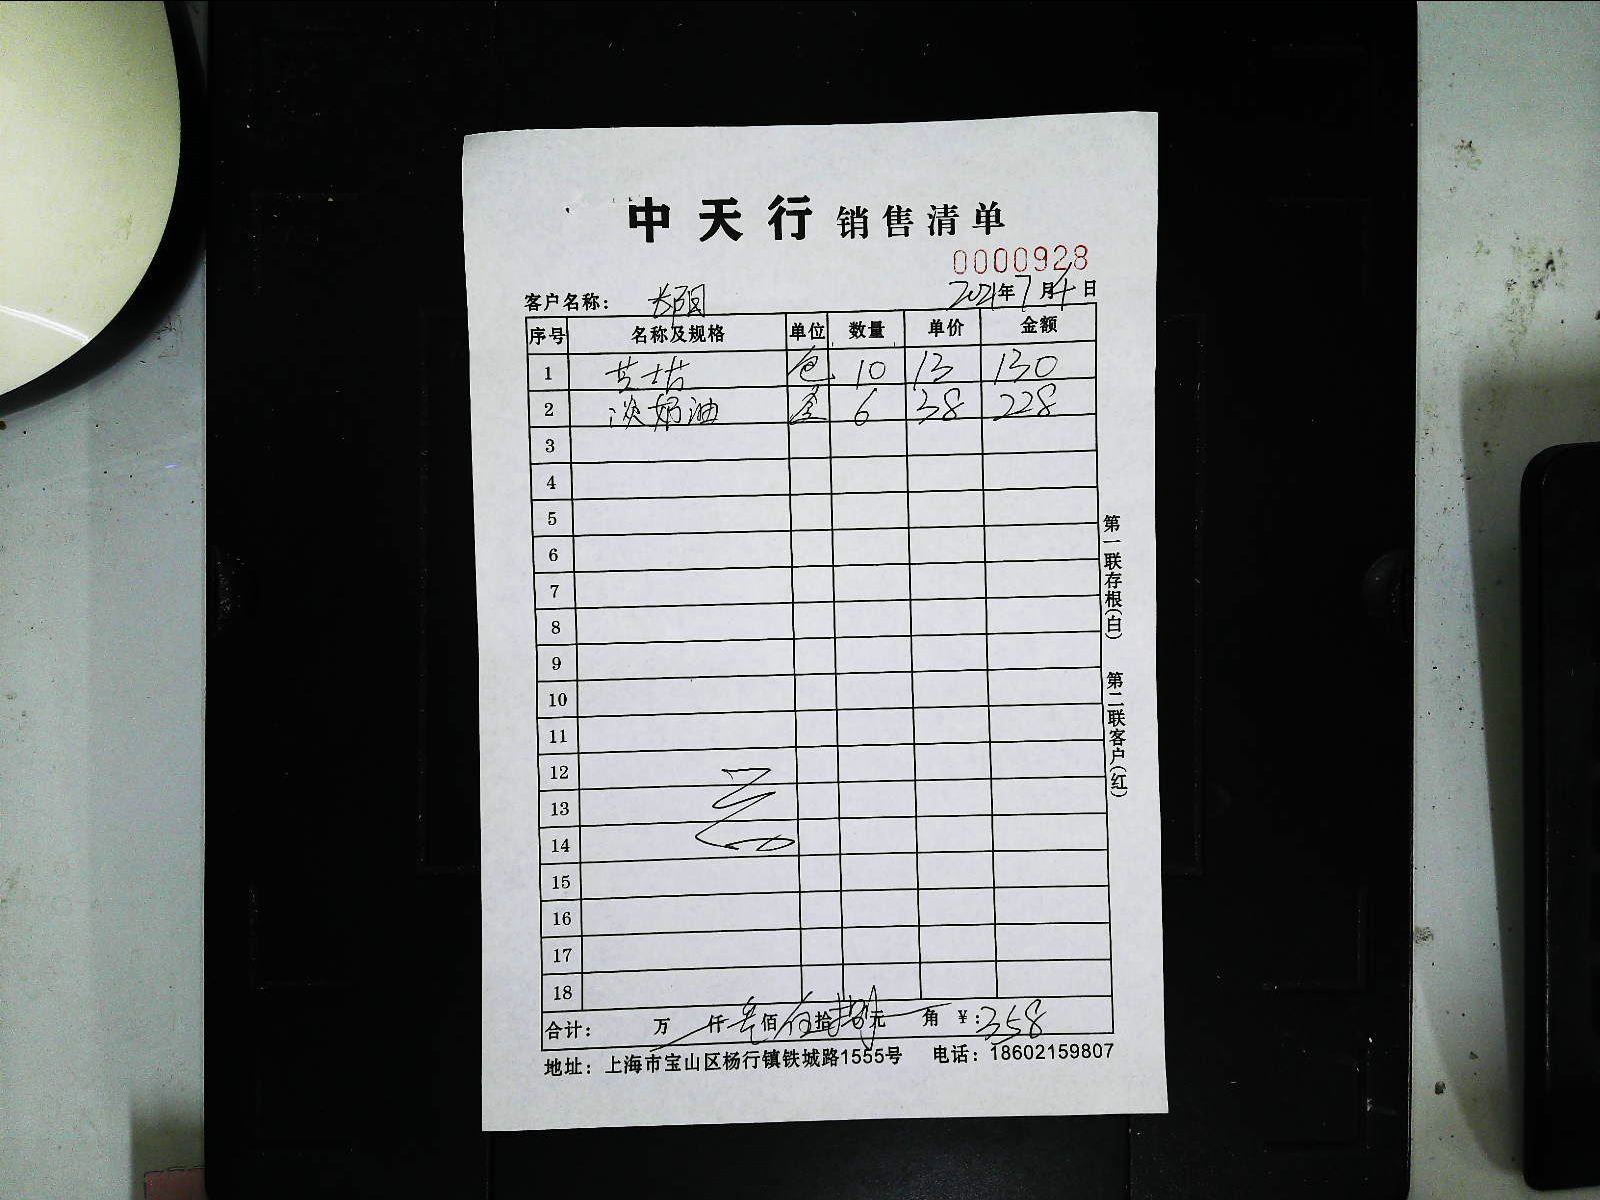 中天行 销售清单
0000928
客户名称： 长阳 2021年7月4日
序号 名称及规格 单位 数量 单价 金额
1 芝士片 包 10 13 130
2 淡奶油 盒 6 38 228
3
4
5
6
7
8
9
10
11
12
13
14
15
16
17
18
合计： 万 仟叁佰伍拾捌元 角 ￥：358
地址：上海市宝山区杨行镇铁城路1555号 电话：18602159807
第一联存根（白） 第二联客户（红）